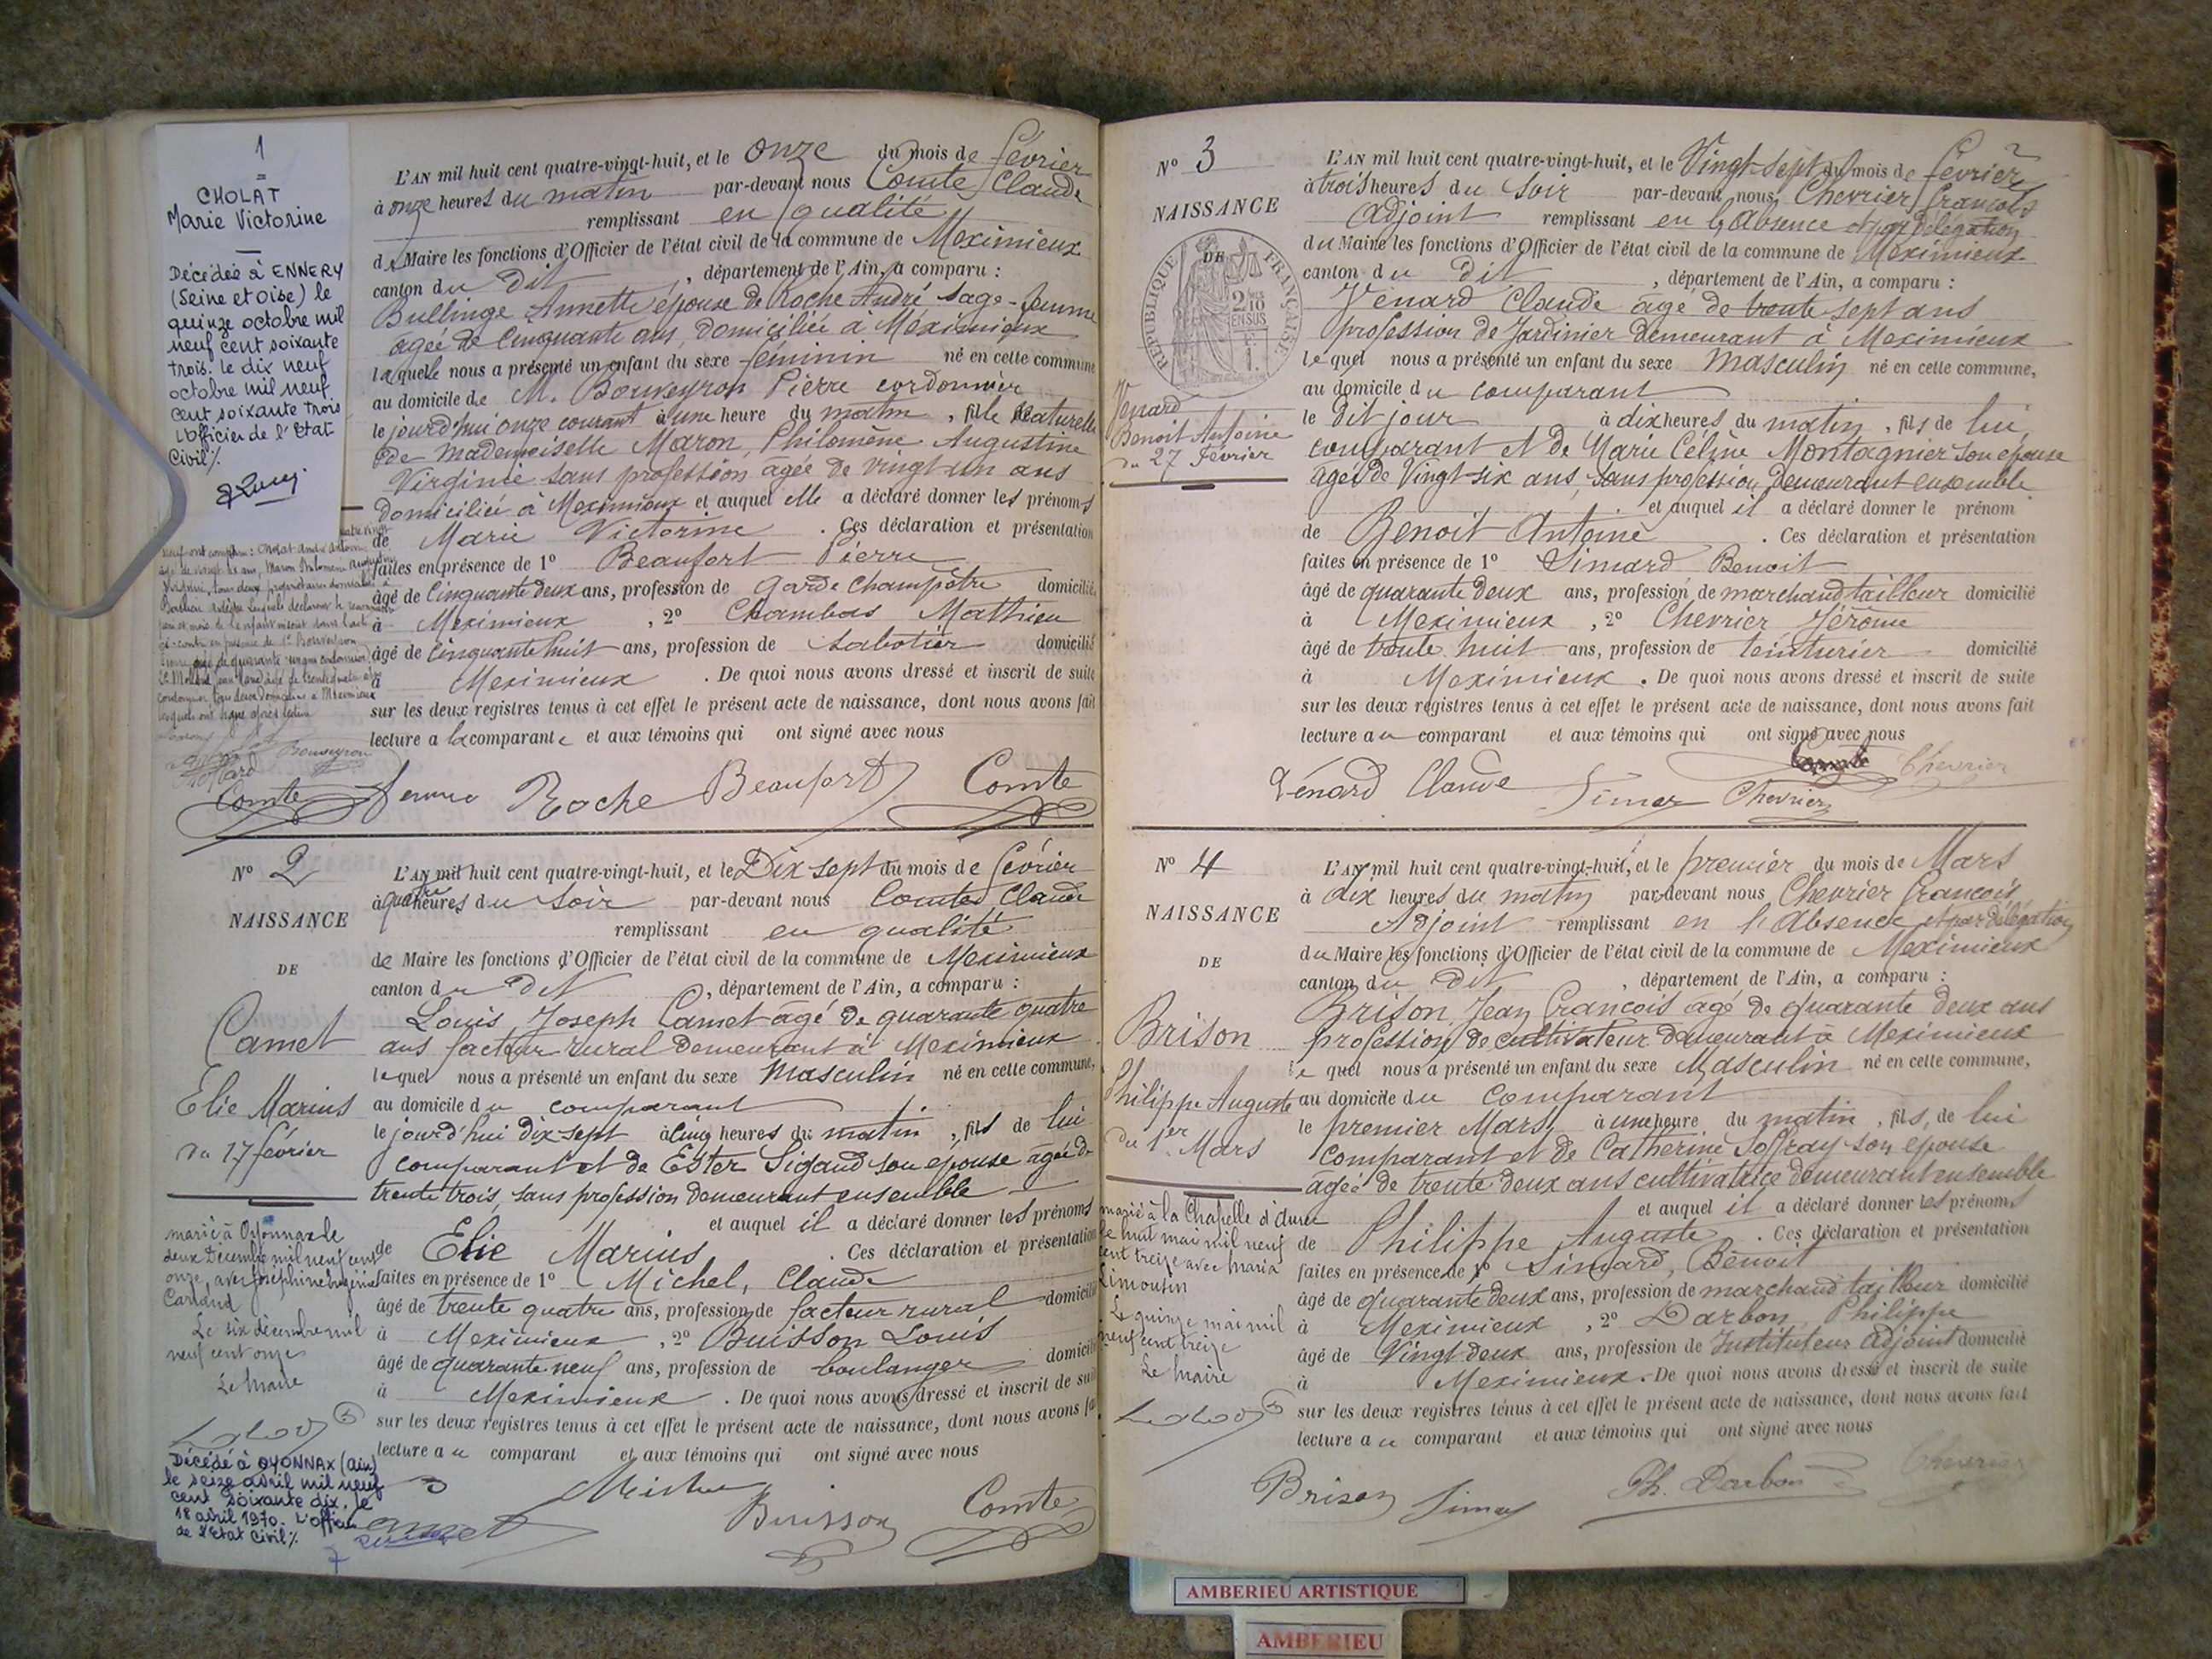 1
CHOLAT
Marie Victorine
Décédée à ENNERY
(Seine et Oise) le
quinze octobre mil
neuf cent soixante
trois. le dix neuf
octobre mil neuf
cent soixante trois
L'officier de l'Etat
Civil %
L'AN mil huit cent quatre-vingt-huit, et le onze du mois de février
à onze heures du matin par-devant nous Comte Claude
remplissant en qualité
de Maire les fonctions d'Officier de l'état civil de la commune de Meximieux
canton du dit, département de l'Ain, a comparu :
Bullinge Annette épouse de Roche André sage-femme
agée de Cinquante ans, domiciliée à Méximieux
laquelle nous a présenté un enfant du sexe féminin né en cette commune
au domicile de M. Bouveyron Pierre cordonnier
le jourd'hui onze courant à une heure du matin, fille naturelle
de Mademoiselle Maron, Philomène Augustine
Virginie sans profession agée de vingt un ans
domiciliée à Meximieux et auquel elle a déclaré donner les prénoms
de Marie Victorine. Ces déclaration et présentation
faites en présence de 1º Beaufort Pierre
âgé de Cinquante deux ans, profession de Garde Champêtre domicilié
à Meximieux, 2º Chambas Mathieu
âgé de Cinquante huit ans, profession de Sabotier domicilié
à Meximieux. De quoi nous avons dressé et inscrit de suite
sur les deux registres tenus à cet effet le présent acte de naissance, dont nous avons fait
lecture a la comparante et aux témoins qui ont signé avec nous
Bouveyron
Comte femme Roche Beaufort Comte
Nº 2
NAISSANCE
DE
Camet
Elie Marius
Du 17 février
L'AN mil huit cent quatre-vingt-huit, et le Dix sept du mois de février
à quatre heures du Soir par-devant nous Comte Claude
remplissant en qualité
de Maire les fonctions d'Officier de l'état civil de la commune de Meximieux
canton du dit, département de l'Ain, a comparu :
Louis Joseph Camet âgé de quarante quatre
ans facteur rural demeurant à Meximieux
lequel nous a présenté un enfant du sexe Masculin né en cette commune,
au domicile du comparant
le jourd'hui dix-sept à cinq heures du matin, fils de lui
comparant et de Ester Sigaud son epouse agée de
trente trois, sans profession demeurant ensemble
et auquel il a déclaré donner les prénoms
de Elie Marius. Ces déclaration et présentation
faites en présence de 1º Michel, Claude
âgé de trente quatre ans, profession de facteur rural domicilié
à Meximieux, 2º Buisson Louis
âgé de quarante neuf ans, profession de boulanger domicilié
à Meximieux. De quoi nous avons dressé et inscrit de suite
sur les deux registres tenus à cet effet le présent acte de naissance, dont nous avons fait
lecture au comparant et aux témoins qui ont signé avec nous
marié à Oyonnax le
deux Décembre mil neuf cent
onze, avec Joséphine Eugénie
Carland
Le six décembre mil
neuf cent onze
Le Maire
Décédé à OYONNAX (Ain)
le seize avril mil neuf
cent soixante dix, le
18 avril 1970. L'officier
de l'Etat Civil %
Michel Buisson Comte
Nº 3
NAISSANCE
DE
RÉPUBLIQUE FRANÇAISE
Venard
Benoit Antoine
du 27 février
L'AN mil huit cent quatre-vingt-huit, et le Vingt-sept du mois de février
à trois heures du Soir par-devant nous Chevrier François
Adjoint remplissant en l'absence et par délégation
du Maire les fonctions d'Officier de l'état civil de la commune de Meximieux
canton du dit, département de l'Ain, a comparu :
Venard Claude âgé de trente sept ans
profession de Jardinier demeurant à Meximieux
lequel nous a présenté un enfant du sexe Masculin né en cette commune,
au domicile du comparant
le dit jour à dix heures du matin, fils de lui
comparant et de Marie Céline Montagnier son épouse
agée de Vingt-six ans, sans profession demeurant ensemble
et auquel il a déclaré donner le prénom
de Benoit Antoine. Ces déclaration et présentation
faites en présence de 1º Simard Benoit
âgé de quarante deux ans, profession de marchand tailleur domicilié
à Meximieux, 2º Chevrier Jérôme
âgé de trente huit ans, profession de teinturier domicilié
à Meximieux. De quoi nous avons dressé et inscrit de suite
sur les deux registres tenus à cet effet le présent acte de naissance, dont nous avons fait
lecture au comparant et aux témoins qui ont signé avec nous
Chevrier
Vénard Claude Simar Chevrier
Nº 4
NAISSANCE
DE
Brison
Philippe Auguste
du 1er Mars
L'AN mil huit cent quatre-vingt-huit, et le premier du mois de Mars
à dix heures du matin par-devant nous Chevrier François
Adjoint remplissant en l'Absence et par délégation
du Maire les fonctions d'Officier de l'état civil de la commune de Meximieux
canton du dit, département de l'Ain, a comparu :
Brison, Jean François agé de quarante deux ans
profession de cultivateur demeurant à Meximieux
le quel nous a présenté un enfant du sexe Masculin né en cette commune,
au domicile du Comparant
le premier Mars, à une heure du matin, fils de lui
comparant et de Catherine Joffray son epouse
agée de trente deux ans cultivatrice demeurant ensemble
et auquel il a déclaré donner les prénoms
de Philippe Auguste. Ces déclaration et présentation
faites en présence de 1º Simard, Benoit
âgé de quarante deux ans, profession de marchand tailleur domicilié
à Meximieux, 2º Darbon, Philippe
âgé de Vingt deux ans, profession de Instituteur Adjoint domicilié
à Meximieux. De quoi nous avons dressé et inscrit de suite
sur les deux registres tenus à cet effet le présent acte de naissance, dont nous avons fait
lecture au comparant et aux témoins qui ont signé avec nous
marié à la Chapelle d'Aurec
le huit mai mil neuf
cent treize avec Maria
Limousin
Le quinze mai mil
neuf cent treize
Le Maire
Brison Simar Ph. Darbon Chevrier
AMBERIEU ARTISTIQUE
AMBERIEU